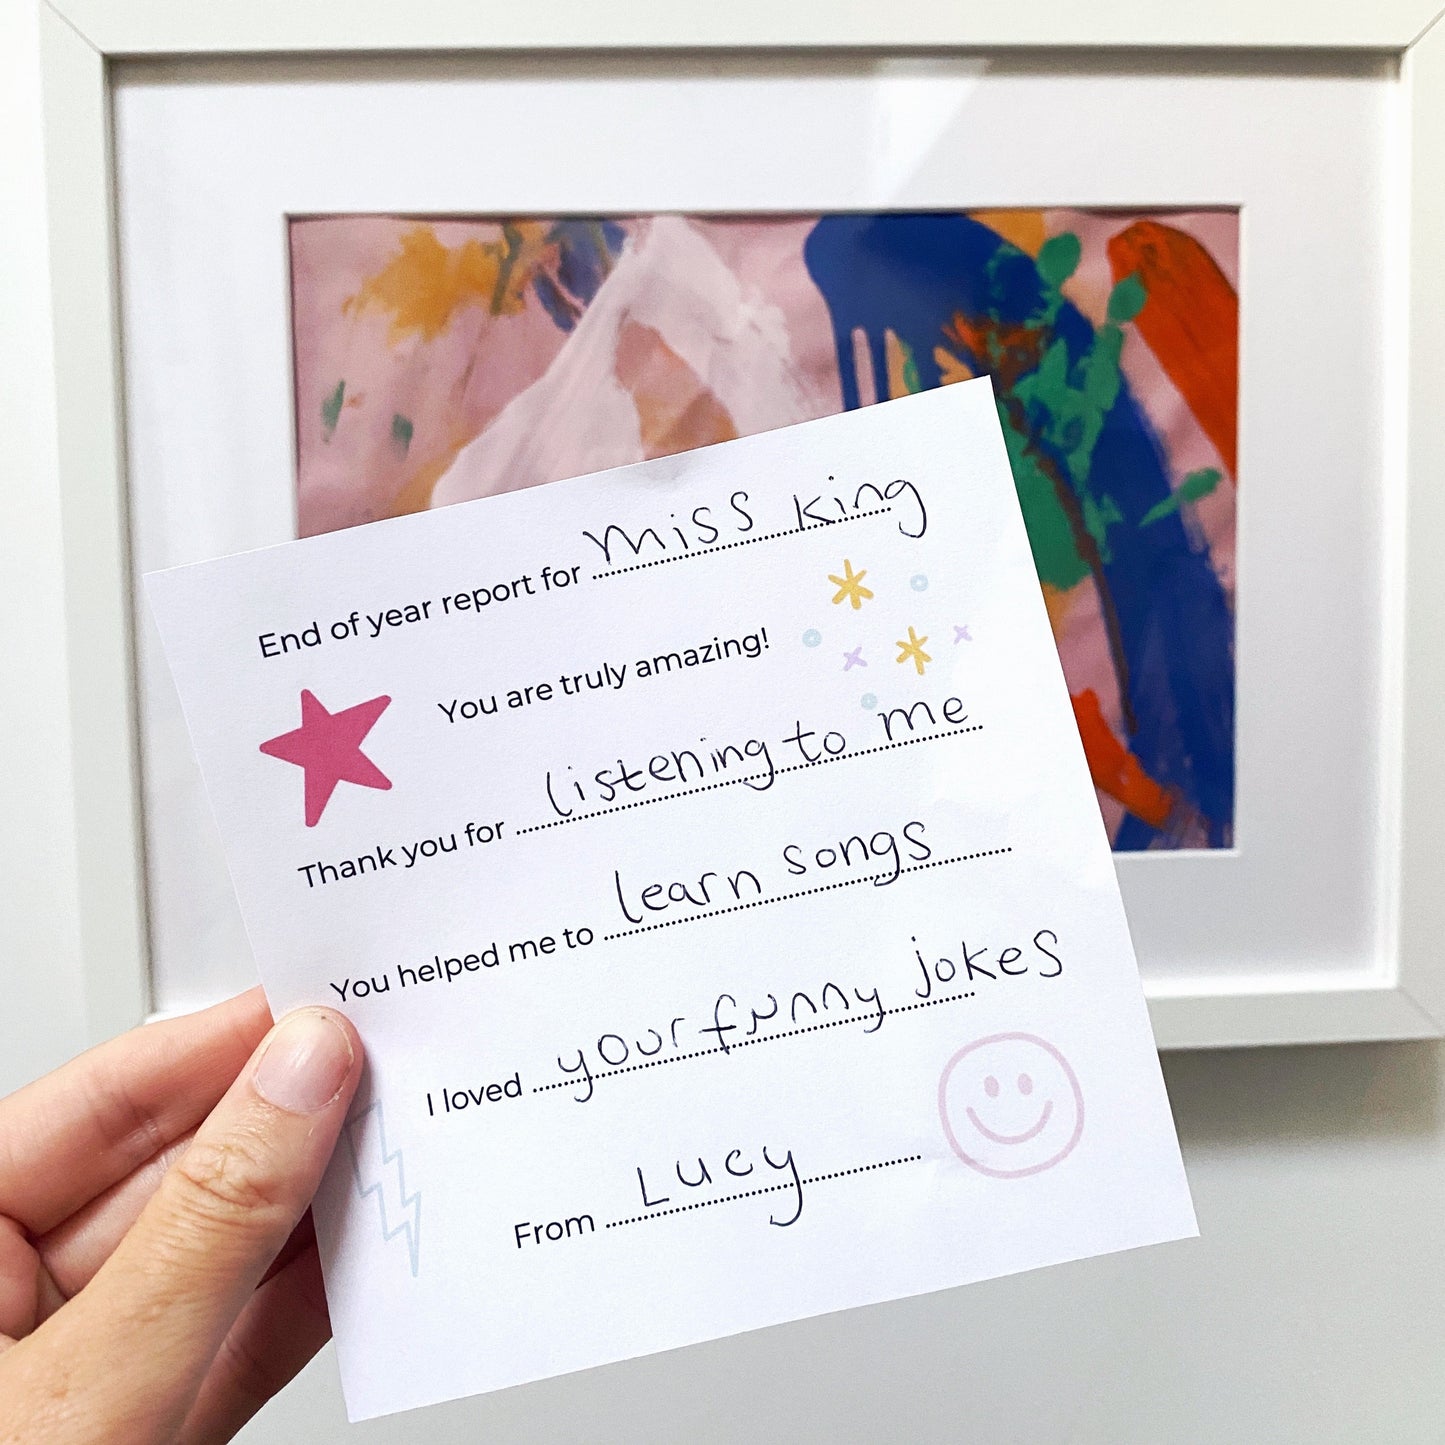 End of year report for miss king
You are truly amazing!
Thank you for listening to me
You helped me to learn songs
I loved your funny jokes
From Lucy